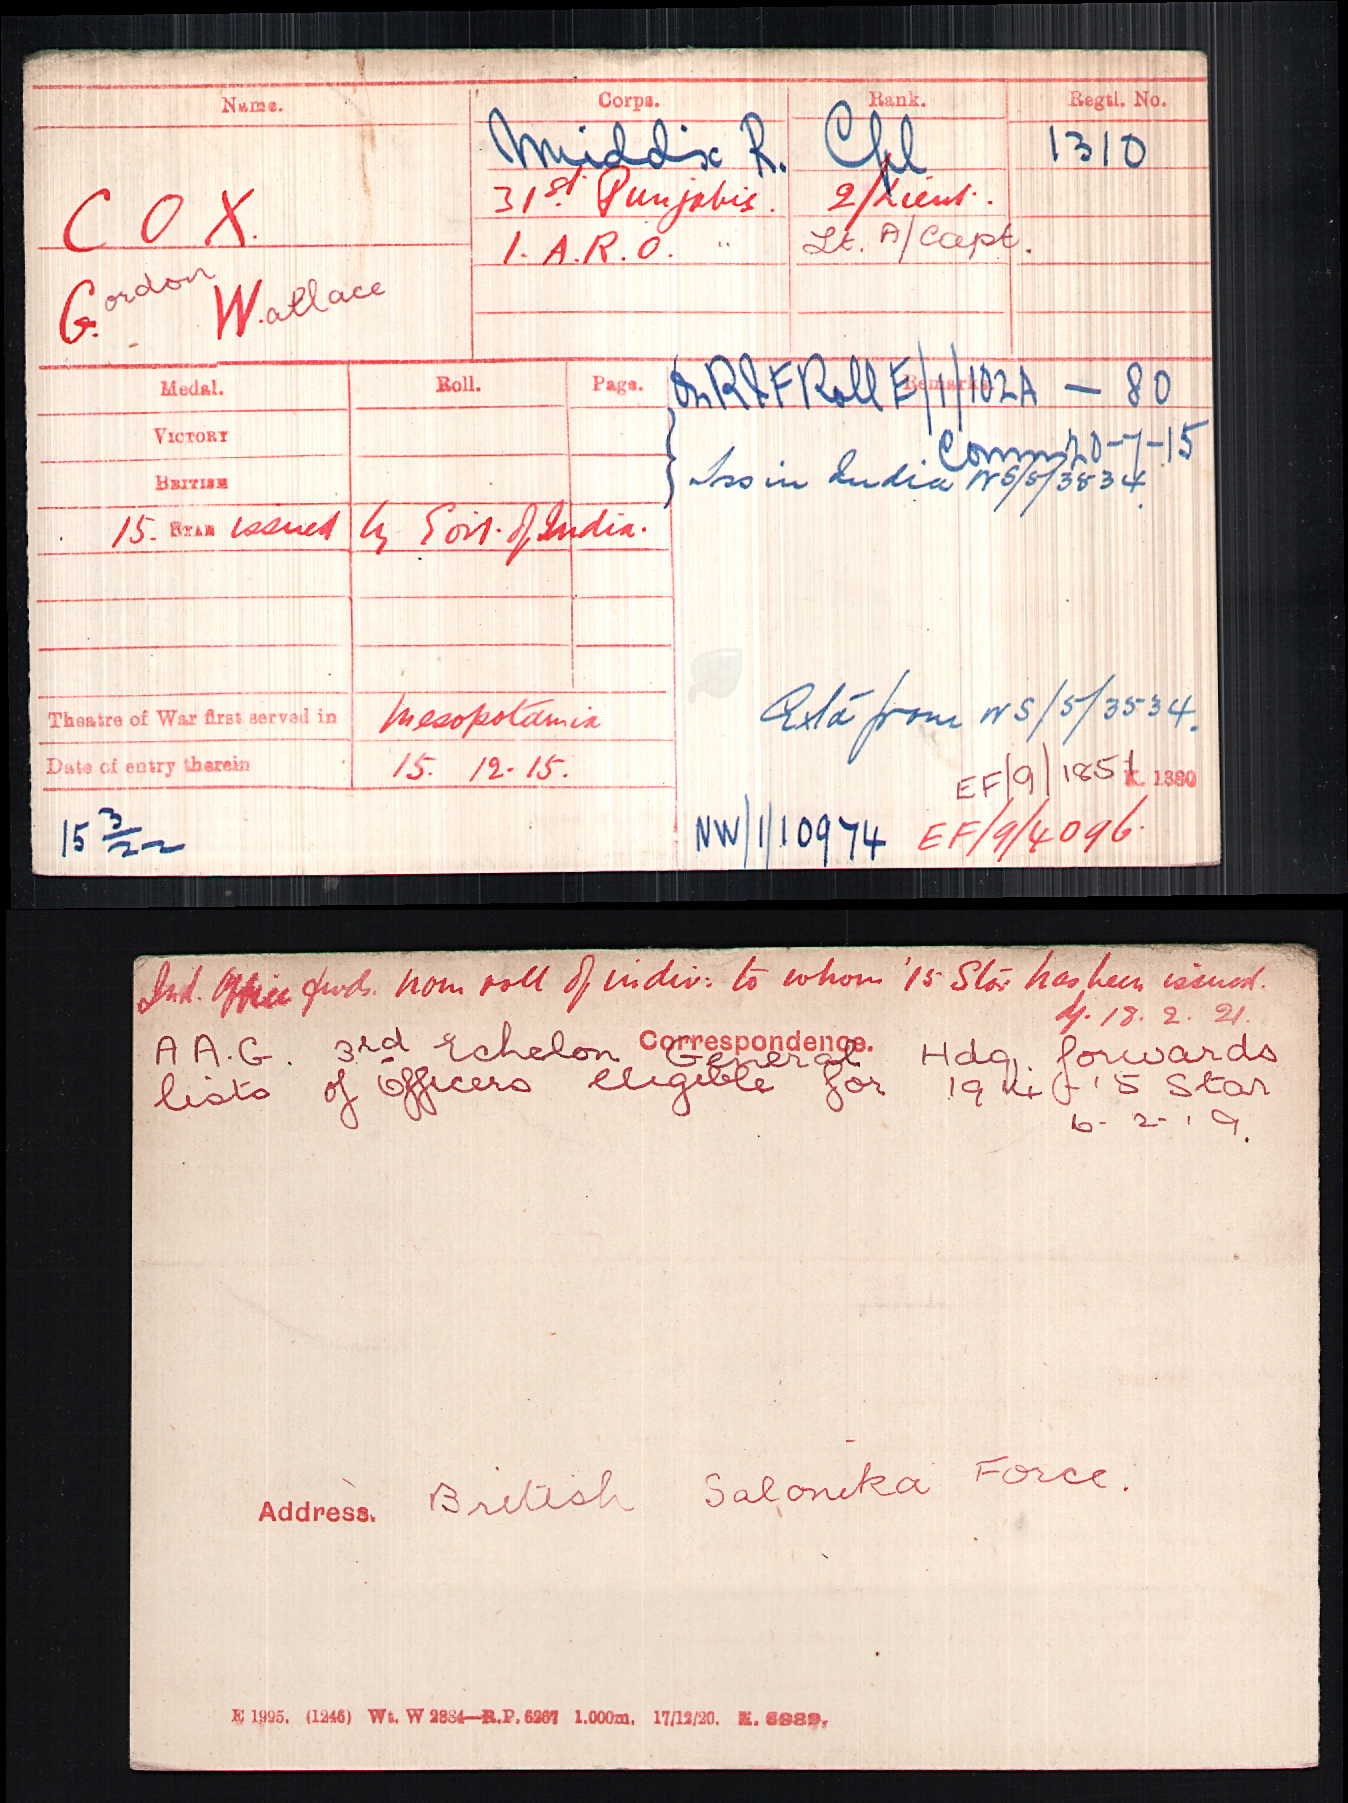 Name. Corps. Rank. Regtl. No.
Middx R. Cpl 1310
COX. 31st Punjabis. 2/Lieut.
I.A.R.O. " Lt. A/Capt.
Gordon Wallace
Medal. Roll. Page. Remarks.
On R & F Roll E/1/102A — 80
VICTORY
Comm 20-7-15
BRITISH
Iss in India NS/5/3534
15. STAR issued by Govt. of India.
Theatre of War first served in Mesopotamia
Extd from NS/5/3534.
Date of entry therein 15. 12. 15.
EF/9/1851 K. 1380
15 3/22 NW/1/10974 EF/9/4096.
Ind. Office fwds. nom roll of indiv: to whom '15 Star has been issued.
18. 2. 21.
Correspondence.
A A.G. 3rd Echelon General Hdq. forwards
lists of Officers eligible for 1914-15 Star
6-2-19.
Address. British Salonika Force.
E 1995. (1246) Wt. W 2884—R.P. 6267 1.000m. 17/12/20. E. 6689.